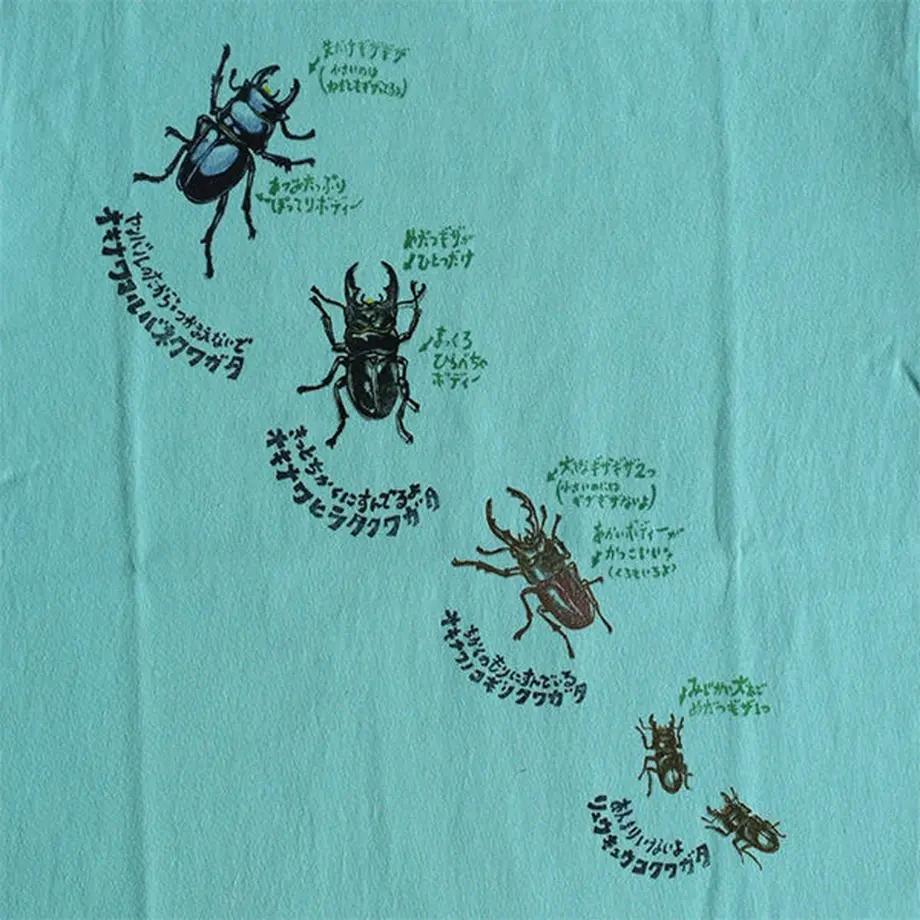 先だけギザギザ
(小さいのは
ねもともギザってるよ)
あつみたっぷり
ぽってりボディー
ヤンバルのたから。つかまえないで
オキナワマルバネクワガタ
めだつギザが
ひとつだけ
まっくろ
ひらべちゃ
ボディー
きっとちかくにすんでるよ
オキナワヒラタクワガタ
大きなギザギザ2つ
(小さいのには
ギザギザないよ)
あかいボディーが
かっこいいな
(くろもいるよ)
ちかくのもりにすんでいる
オキナワノコギリクワガタ
みじかい大あごで
めだつギザ1つ
あんまりいないよ
リュウキュウコクワガタ